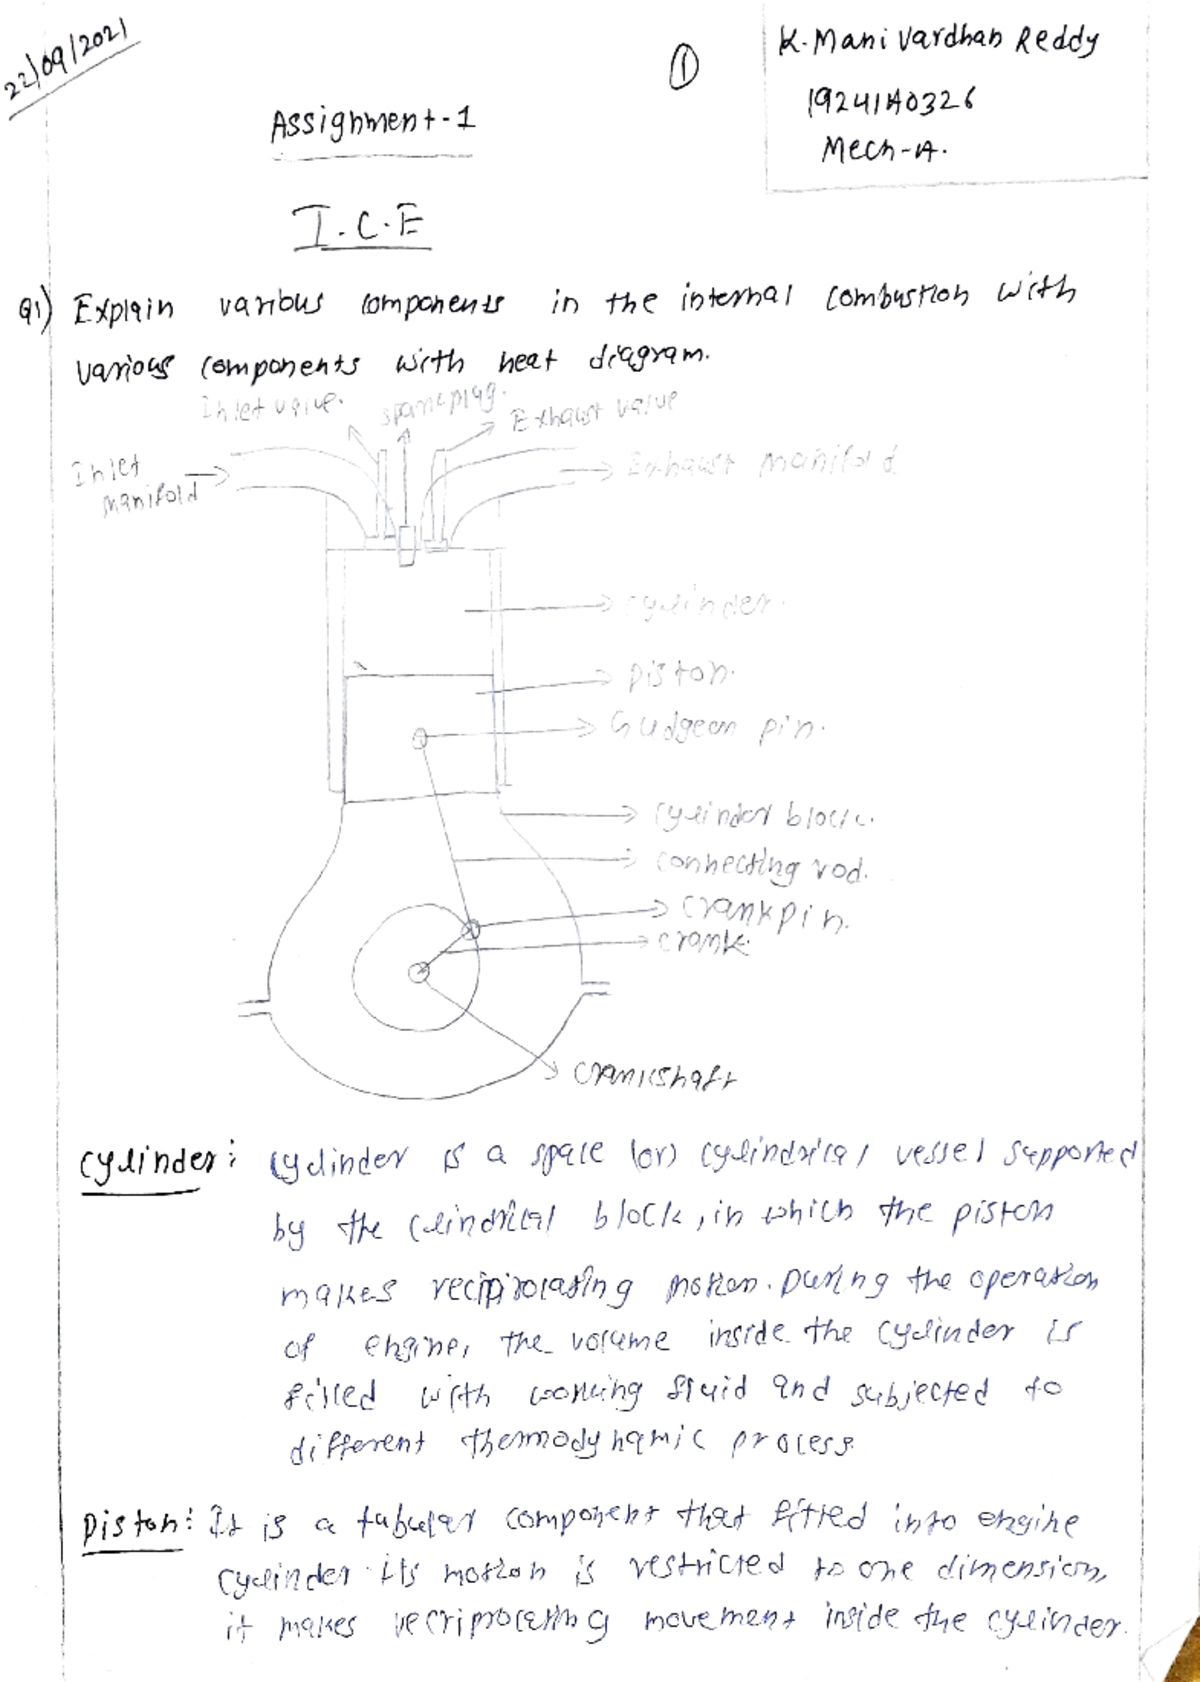 22/09/2021
①
K. Mani Vardhan Reddy
19241A0326
Mech-A.
Assignment-1
I.C.E
Q1) Explain various components in the internal combustion with
various components with neat diagram.
Inlet valve.
spark plug.
Exhaust valve
Inlet
manifold
Exhaust manifold
cylinder.
piston.
Gudgeon pin.
cylinder block.
connecting rod.
crankpin.
crank.
crankshaft
cylinder: cylinder is a space (or) cylindrical vessel supported
by the clindrical block, in which the piston
makes reciprocating motion. During the operation
of engine, the volume inside the cylinder is
filled with working fluid and subjected to
different thermodynamic process.
piston: It is a tubular component that fitted into engine
cylinder its motion is restricted to one dimension,
it makes recriprocating movement inside the cylinder.